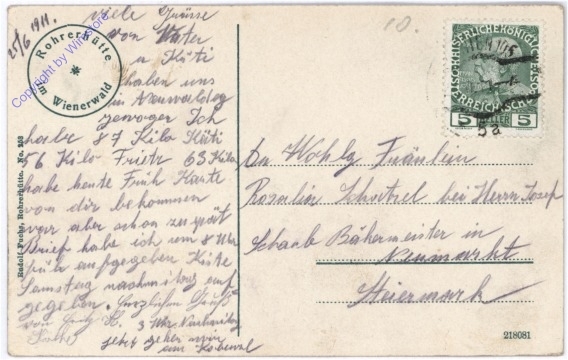 25/6 1911.
Viele Grüsse
von Vater
u Käti
haben uns
in Neuwaldeg
gewogen Ich
habe 87 Kilo Käti
56 Kilo Fritz 63 Kilo
habe heute Früh Karte
von dir bekommen
war aber schon zu spät
Brief habe ich um 8 Uhr
früh aufgegeben Käte
Samstag nachmittag auf
gegeben. Herzlichen Gruß
von
3 Uhr Nachmittag
jetzt gehen wir
am Kobenzel
Rohrerhütte
im Wienerwald
Copyright by Winstore
Rudolf Fuchs, Rohrerhütte. No. 253
10.
KAISERLICHE KÖNIGLICHE
ÖSTERREICHISCHE
5 HELLER 5
5a
An Wohlg Fräulein
Rosalin Schwetzel bei Herrn Josef
Schaab Bäkermeister in
Neumarkt
Steiermark
218081